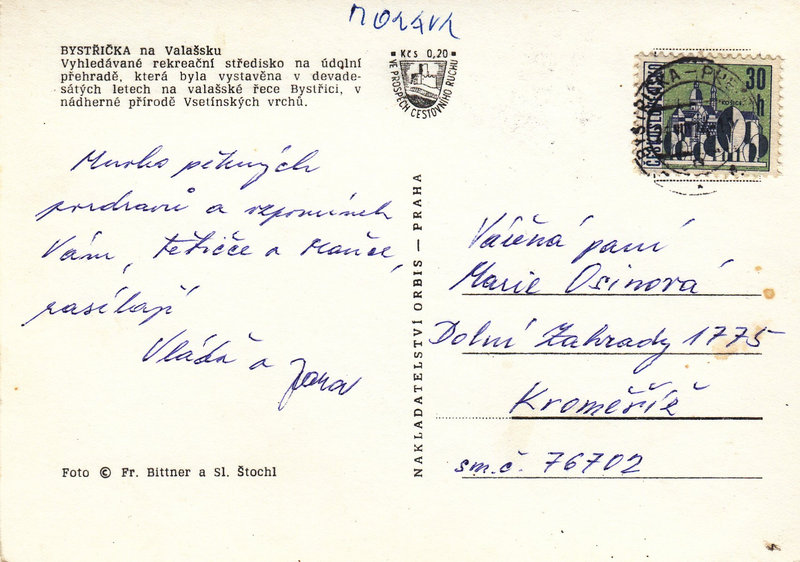 MORAVA
BYSTŘIČKA na Valašsku
Vyhledávané rekreační středisko na údolní
přehradě, která byla vystavěna v devade-
sátých letech na valašské řece Bystřici, v
nádherné přírodě Vsetínských vrchů.
Kčs 0,20
VE PROSPĚCH CESTOVNÍHO RUCHU
ČESKOSLOVENSKO
30 h
KOŠICE
Mnoho pěkných
pozdravů a vzpomínek
Vám, tetičce a Mařce,
zasílají
Vláďa a Jana
NAKLADATELSTVÍ ORBIS — PRAHA
Vážená paní
Marie Osinová
Dolní Zahrady 1775
Kroměříž
sm.č. 76702
Foto © Fr. Bittner a Sl. Štochl